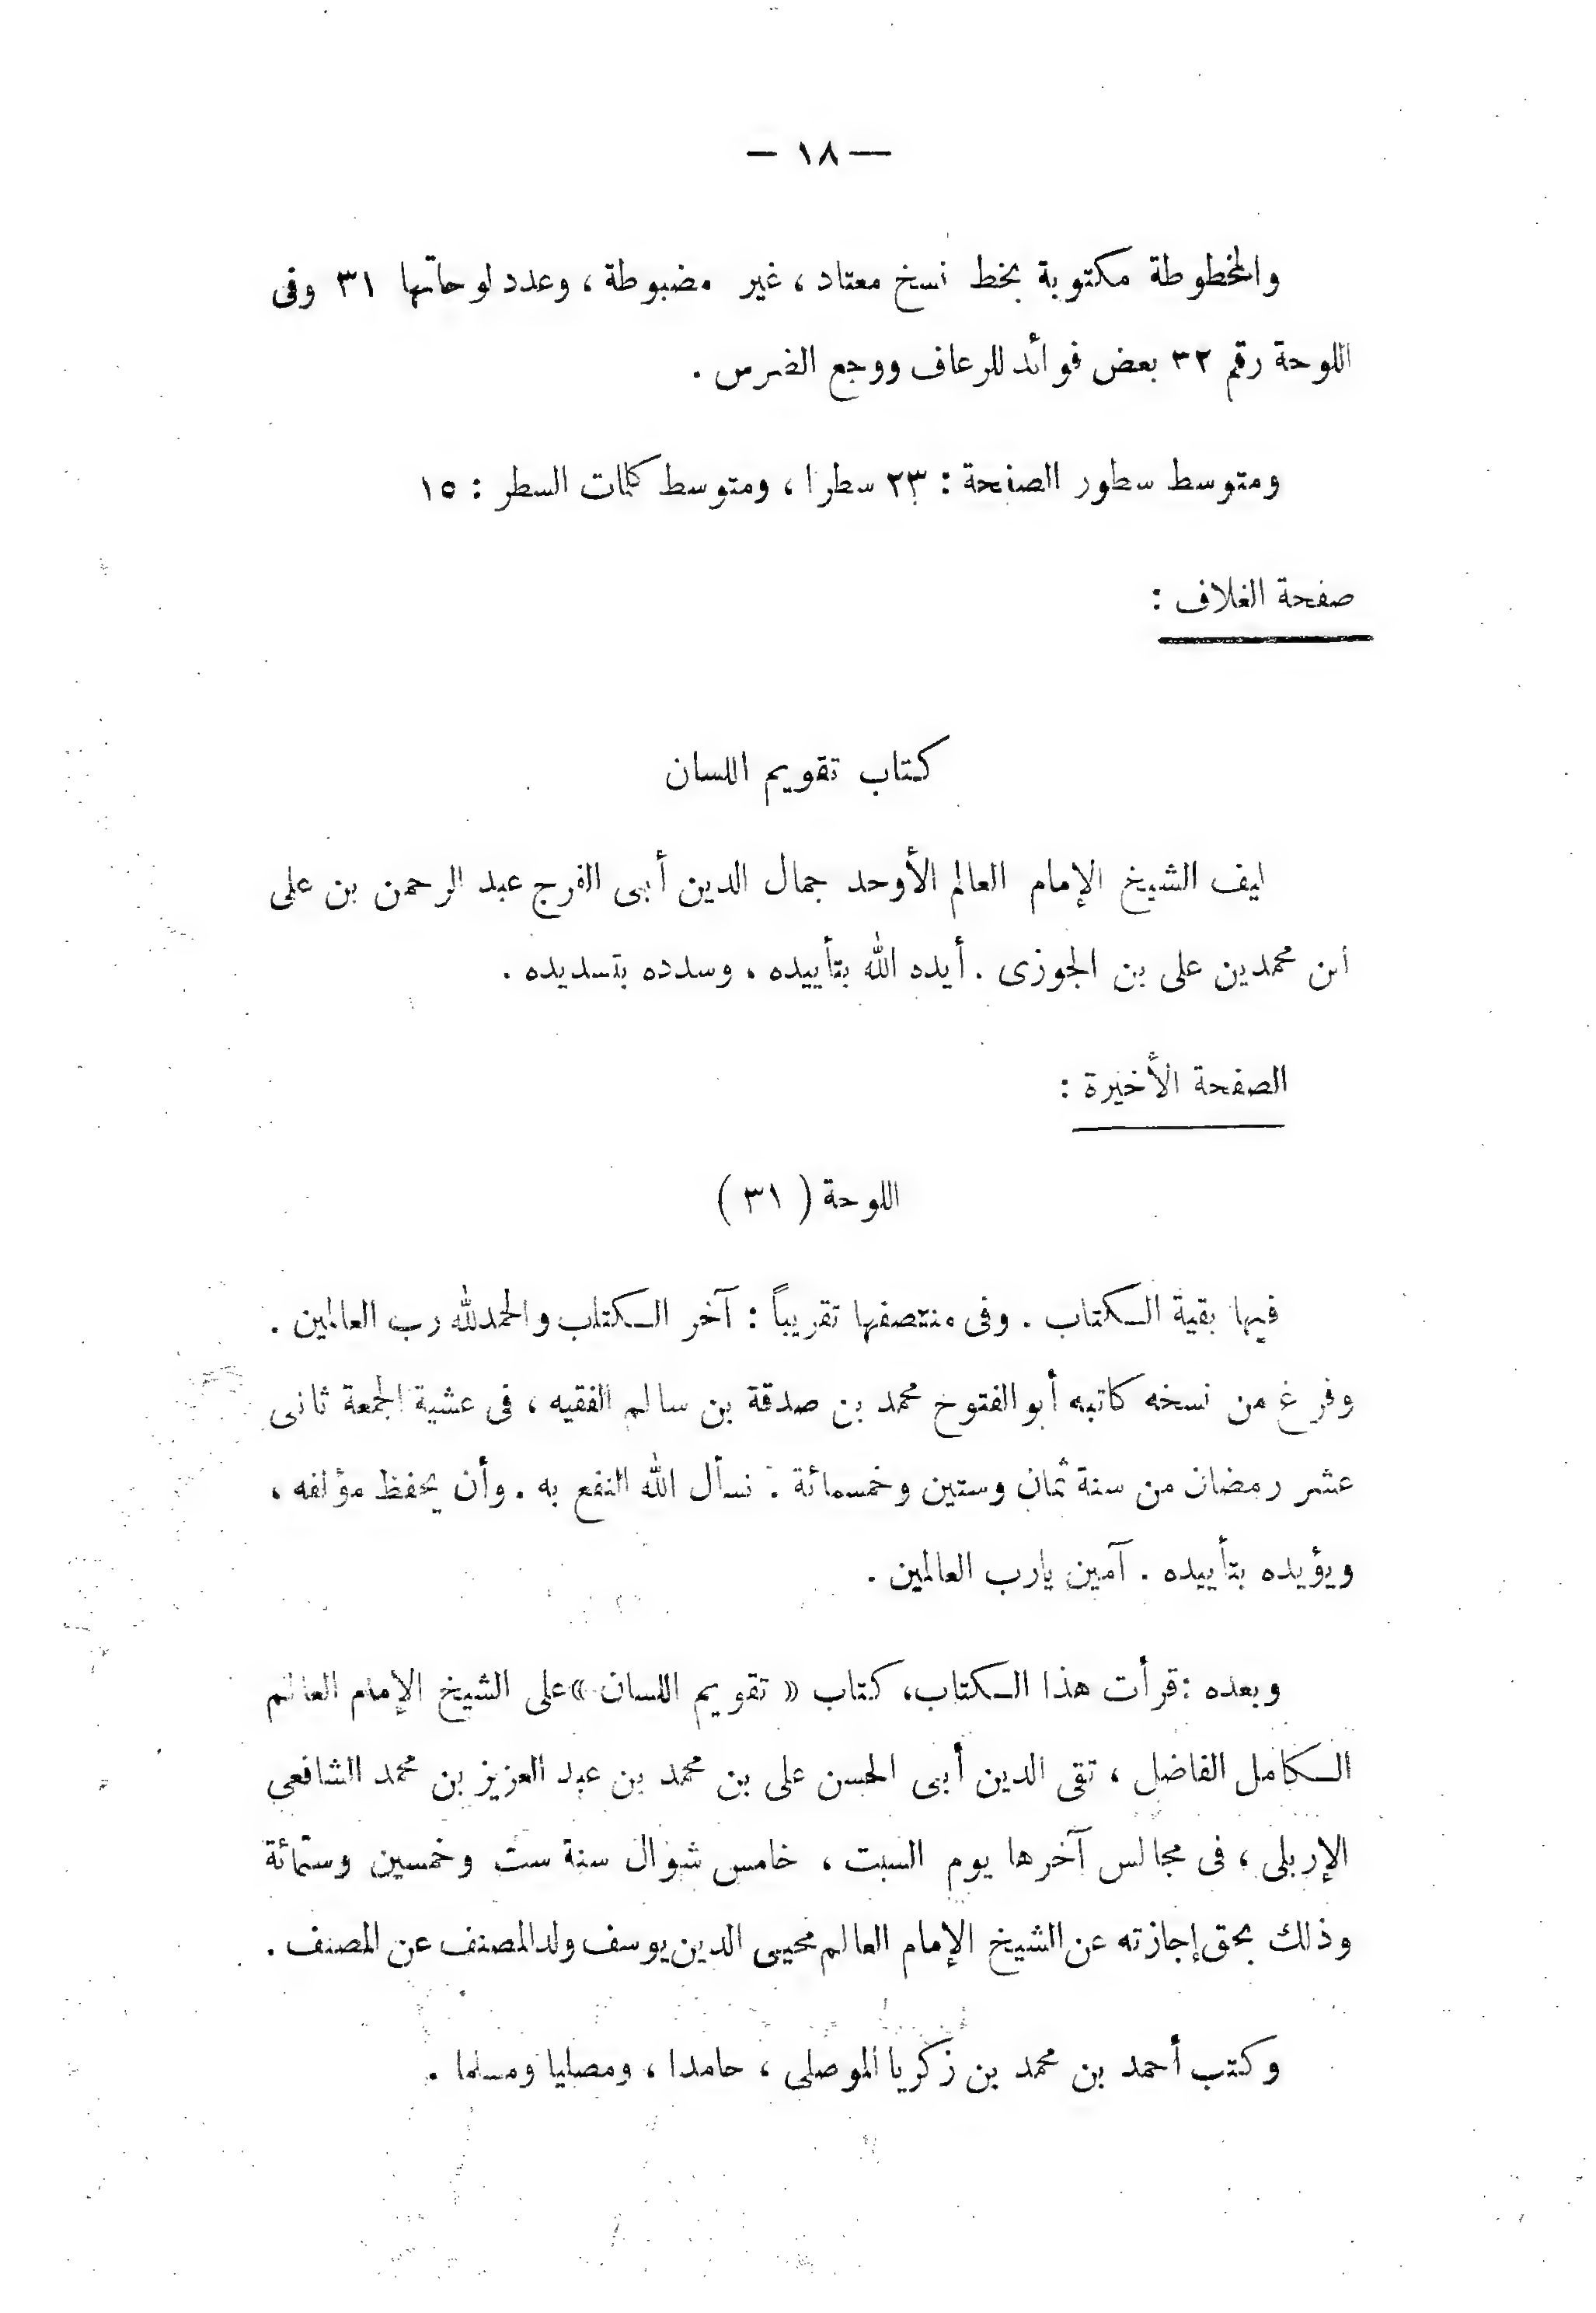 — ١٨ —
والمخطوطة مكتوبة بخط نسخ معتاد ، غير مضبوطة ، وعدد لوحاتها ٣١ وفى
اللوحة رقم ٣٢ بعض فوائد للرعاف ووجع الضرس .
ومتوسط سطور الصفحة : ٢٣ سطرا ، ومتوسط كلمات السطر : ١٥
صفحة الغلاف :
كتاب تقويم اللسان
ليف الشيخ الإمام العالم الأوحد جمال الدين أبى الفرج عبد الرحمن بن على
ابن محمد بن على بن الجوزى . أيده الله بتأييده ، وسدده بتسديده .
الصفحة الأخيرة :
اللوحة ( ٣١ )
فيها بقية الكتاب . وفى منتصفها تقريباً : آخر الكتاب والحمد لله رب العالمين .
وفرغ من نسخه كاتبه أبو الفتوح محمد بن صدقة بن سالم الفقيه ، فى عشية الجمعة ثانى
عشر رمضان من سنة ثمان وستين وخمسمائة . نسأل الله النفع به . وأن يحفظ مؤلفه ،
ويؤيده بتأييده . آمين يارب العالمين .
وبعده : قرأت هذا الكتاب، كتاب « تقويم اللسان » على الشيخ الإمام العالم
الكامل الفاضل ، تقى الدين أبى الحسن على بن محمد بن عبد العزيز بن محمد الشافعى
الإربلى ، فى مجالس آخرها يوم السبت ، خامس شوال سنة ست وخمسين وستمائة
وذلك بحق إجازته عن الشيخ الإمام العالم محيى الدين يوسف ولد المصنف عن المصنف .
وكتب أحمد بن محمد بن زكريا الموصلى ، حامدا ، ومصليا ومسلما .